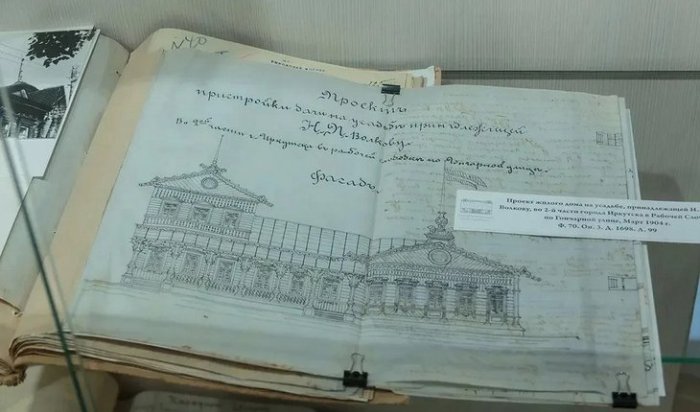 №40
Проектъ
пристройки дома на усадьбѣ принадлежащей
Н. П. Волкову
Во 2ой части г. Иркутска въ рабочей слободѣ по Гончарной улицѣ.
Фасадъ.
Проект жилого дома на усадьбе, принадлежащей И.
Волкову, во 2-й части города Иркутска в Рабочей Сло
по Гончарной улице, Март 1904 г.
Ф. 70. Оп. 3. Д. 1698. Л. 99